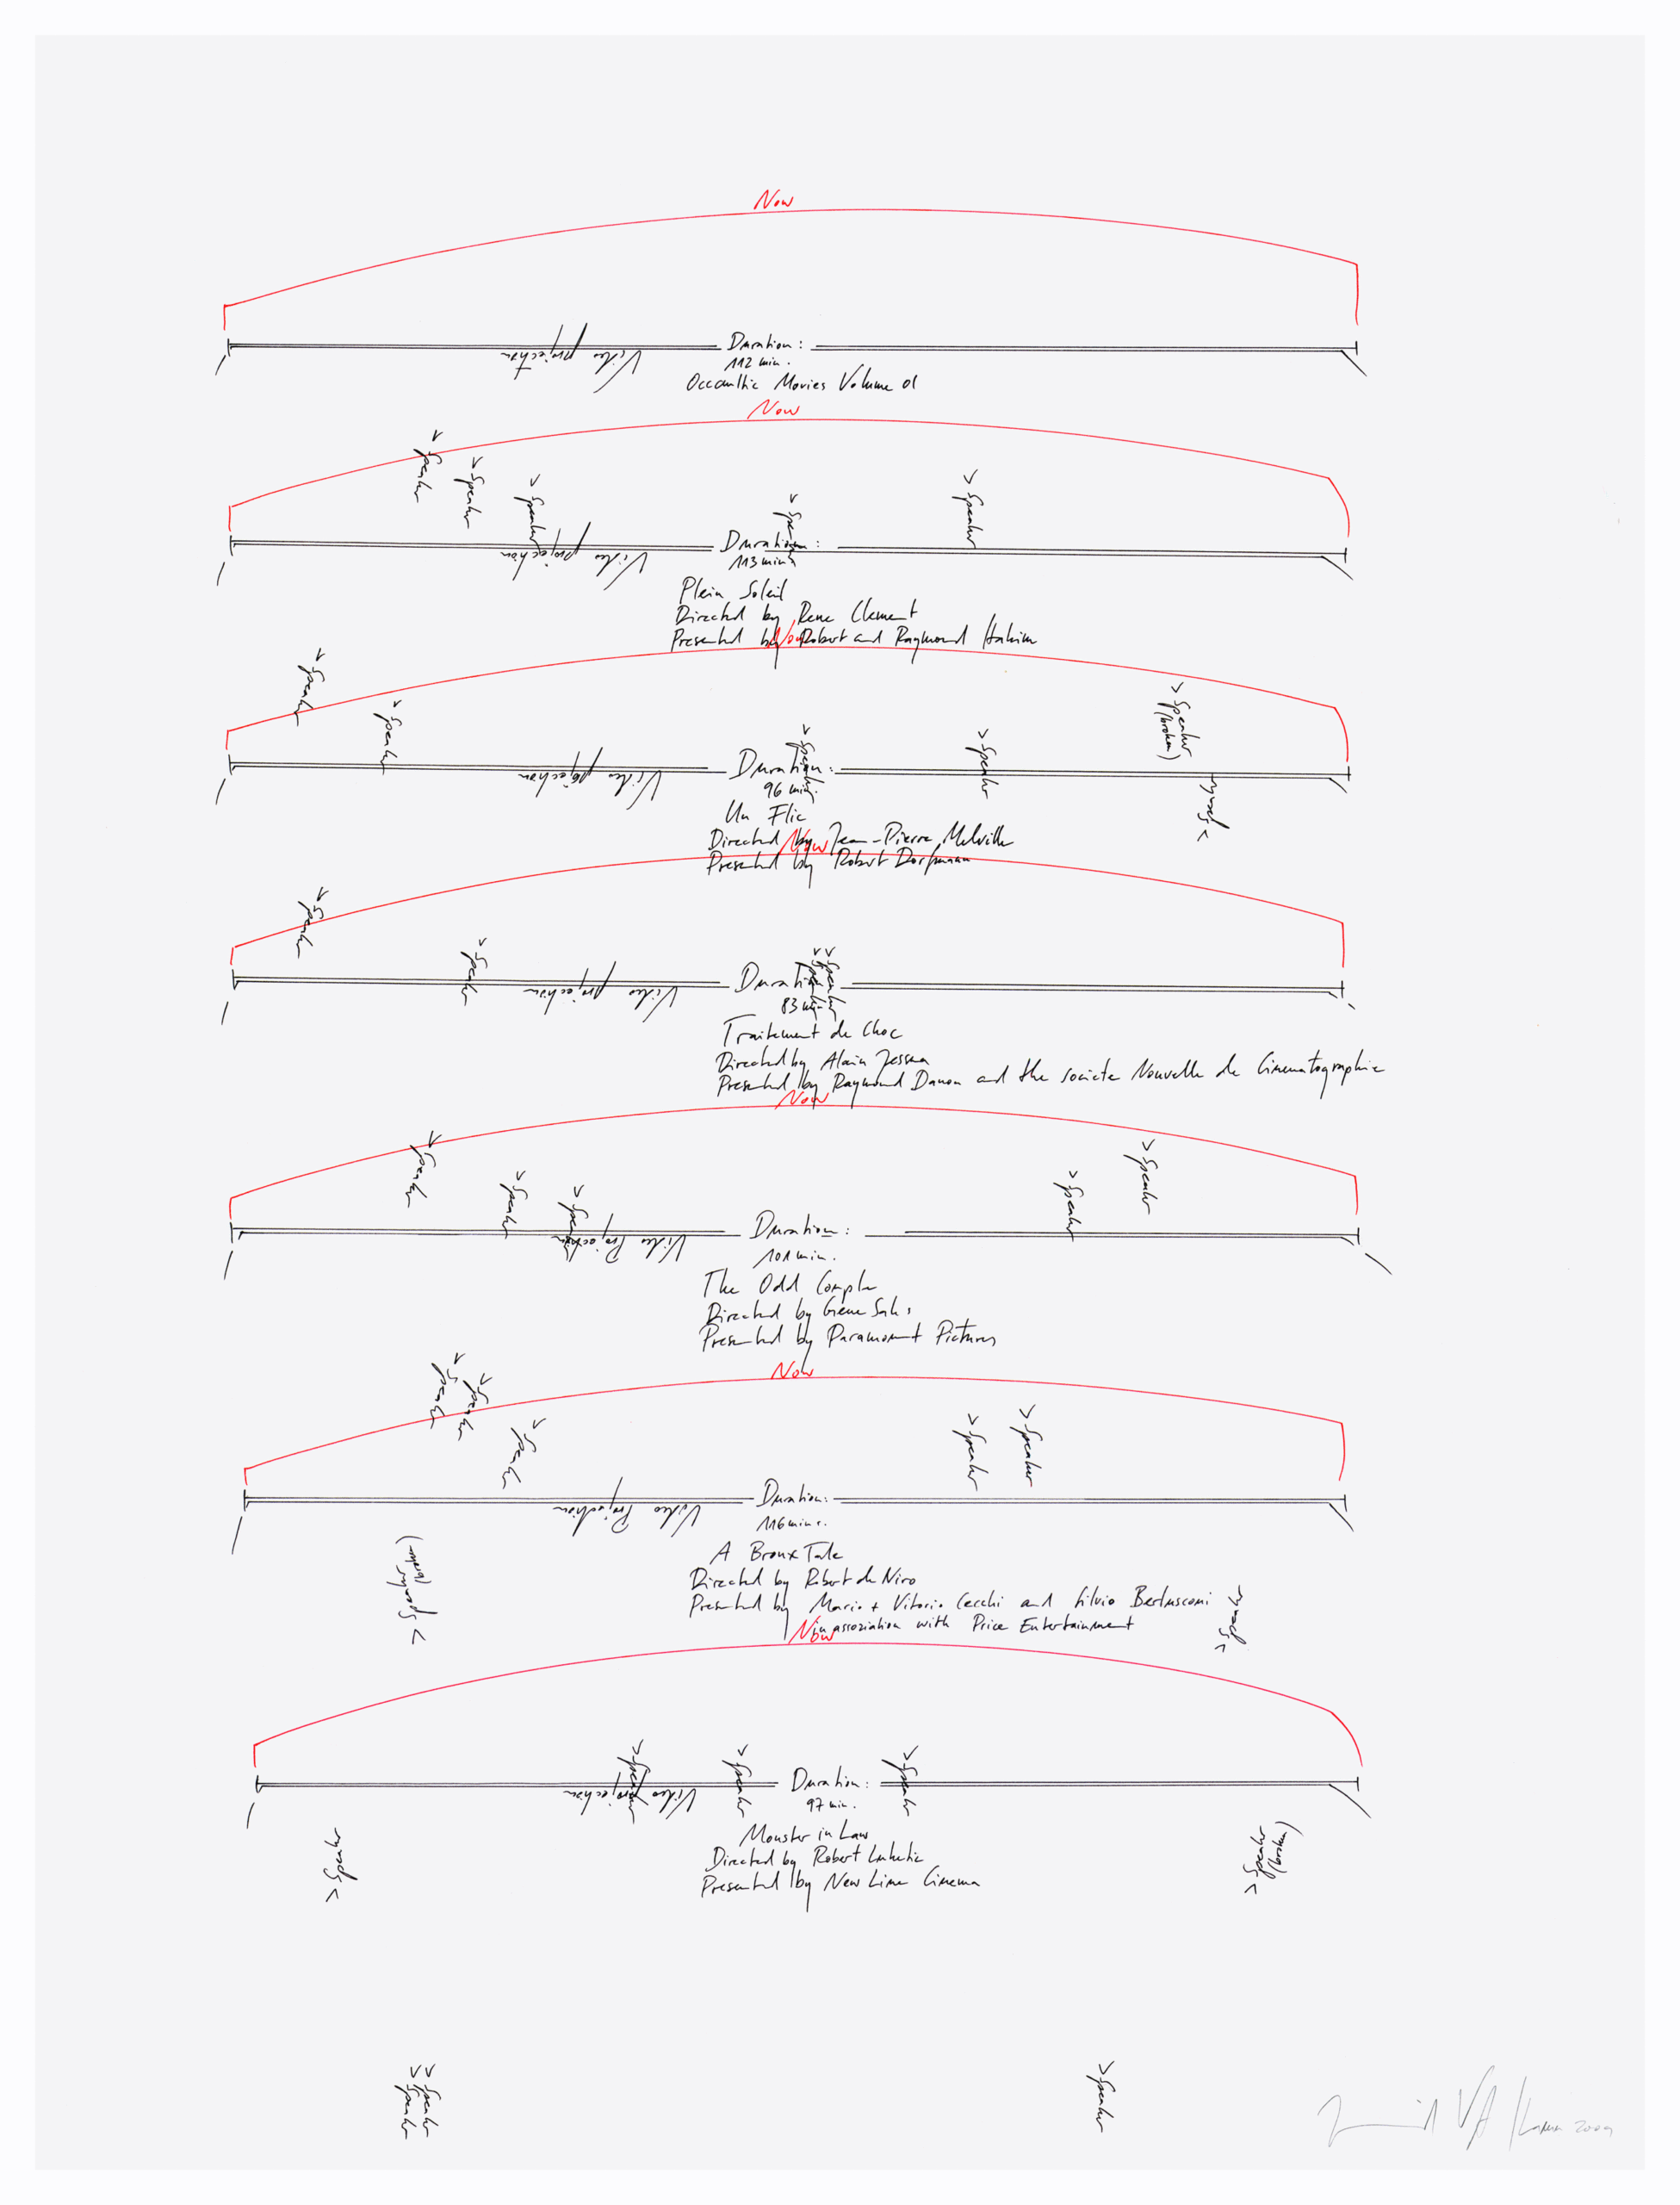 Now
Duration:
Video projection
112 min.
Occaulltic Movies Volume 01
Now
> Speaker
> Speaker
> Speaker
> Speaker
> Speaker
Duration:
Video projection
113 min.
Plein Soleil
Directed by Rene Clement
Presented by Robert and Raymond Hakim
Now
> Speaker
> Speaker
> Speaker
> Speaker
> Speaker
(broken)
Duration:
Video projection
> Speaker
96 min.
Un Flic
Directed by Jean-Pierre Melville
Presented by Robert Dorfmann
Now
> Speaker
> Speaker
> Speaker
> Speaker
Duration:
Video projection
83 min.
Traitement de Choc
Directed by Alain Jessua
Presented by Raymond Danon and the societe Nouvelle de Cinematographie
Now
> Speaker
> Speaker
> Speaker
> Speaker
> Speaker
Duration:
Video Projection
101 min.
The Odd Couple
Directed by Gene Saks
Presented by Paramount Pictures
Now
> Speaker
> Speaker
> Speaker
> Speaker
> Speaker
Duration:
Video Projection
116 min.
> Speaker
(broken)
A Bronx Tale
Directed by Robert de Niro
Presented by Mario + Vitorio Cecchi and Silvio Berlusconi
in assoziation with Price Entertainment
> Speaker
Now
> Speaker
> Speaker
> Speaker
Duration:
Video projection
97 min.
> Speaker
Monster in Law
Directed by Robert Luketic
Presented by New Line Cinema
> Speaker
(broken)
> Speaker
> Speaker
> Speaker
2009